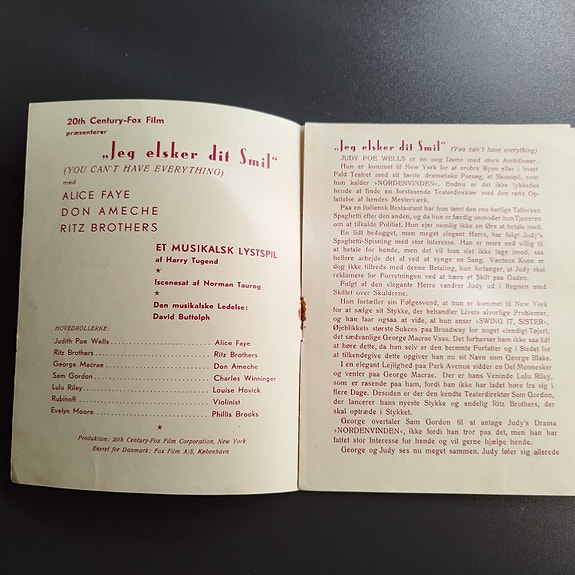 20th Century-Fox Film
præsenterer
„Jeg elsker dit Smil"
(YOU CAN'T HAVE EVERYTHING)
med
ALICE FAYE
DON AMECHE
RITZ BROTHERS
ET MUSIKALSK LYSTSPIL
af Harry Tugend
★
Iscenesat af Norman Taurog
★
Den musikalske Ledelse:
David Buttolph
HOVEDROLLERNE:
Judith Poe Wells . . . . . . . . . . . . . . . . . . . . Alice Faye
Ritz Brothers . . . . . . . . . . . . . . . . . . . . Ritz Brothers
George Macrae . . . . . . . . . . . . . . . . . . . . Don Ameche
Sam Gordon . . . . . . . . . . . . . . . . . . . . Charles Winninger
Lulu Riley . . . . . . . . . . . . . . . . . . . . Louise Hovick
Rubinoff . . . . . . . . . . . . . . . . . . . . Violinist
Evelyn Moore . . . . . . . . . . . . . . . . . . . . Phillis Brooks
★
Produktion: 20th Century-Fox Film Corporation, New York
Eneret for Danmark: Fox Film A/S, København
„Jeg elsker dit Smil" (You can't have everything)
JUDY POE WELLS er en ung Dame med store Ambitioner.
Hun er kommet til New York for at erobre Byen eller i hvert
Fald Teatret med sit første dramatiske Forsøg, et Skuespil, som
hun kalder »NORDENVINDEN«. Endnu er det ikke lykkedes
hende at finde en forstaaende Teaterdirektør med den rette Op-
fattelse af hendes Mesterværk.
Paa en italiensk Restaurant har hun tømt den ene herlige Tallerken
Spaghetti efter den anden, og da hun er færdig anmoder hun Tjeneren
om at tilkalde Politiet. Hun ejer nemlig ikke en Øre at betale med.
En lidt bedugget, men meget elegant Herre, har fulgt Judy's
Spaghetti-Spisning med stor Interesse. Han er mere end villig til
at betale for hende, men det vil hun slet ikke tage imod, saa
hellere arbejde det af ved at synge en Sang. Værtens Kone er
dog ikke tilfreds med denne Betaling, hun forlanger, at Judy skal
reklamere for Forretningen ved at bære et Skilt paa Gaden.
Fulgt af den elegante Herre vandrer Judy ud i Regnen med
Skiltet over Skuldrene.
Hun fortæller sin Følgesvend, at hun er kommet til New York
for at sælge sit Stykke, der behandler Livets alvorlige Problemer,
og han faar ogsaa at vide, at hun anser »SWING IT, SISTER«,
Øjeblikkets største Sukces paa Broadway for noget elendigt Tøjeri,
det sædvanlige George Macrae Vaas. Det forbavser ham ikke saa lidt
at høre dette, da han selv er den berømte Forfatter og i Stedet for
at tilkendegive dette opgiver han nu sit Navn som George Blake.
I en elegant Lejlighed paa Park Avenue sidder en Del Mennesker
og venter paa George Macrae. Der er hans Veninde Lulu Riley,
som er rasende paa ham, fordi han ikke har ladet høre fra sig i
flere Dage. Desuden er der den kendte Teaterdirektør Sam Gordon,
der lancerer hans nyeste Stykke og endelig Ritz Brothers, der
skal optræde i Stykket.
George overtaler Sam Gordon til at antage Judy's Drama
»NORDENVINDEN«, ikke fordi han tror paa det, men han har
fattet stor Interesse for hende og vil gerne hjælpe hende.
George og Judy ses nu meget sammen. Judy føler sig allerede